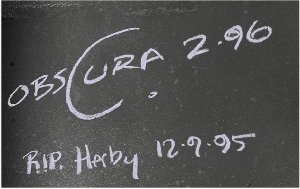 OBSCURA 2.96
R.I.P. Herby 12.9.95